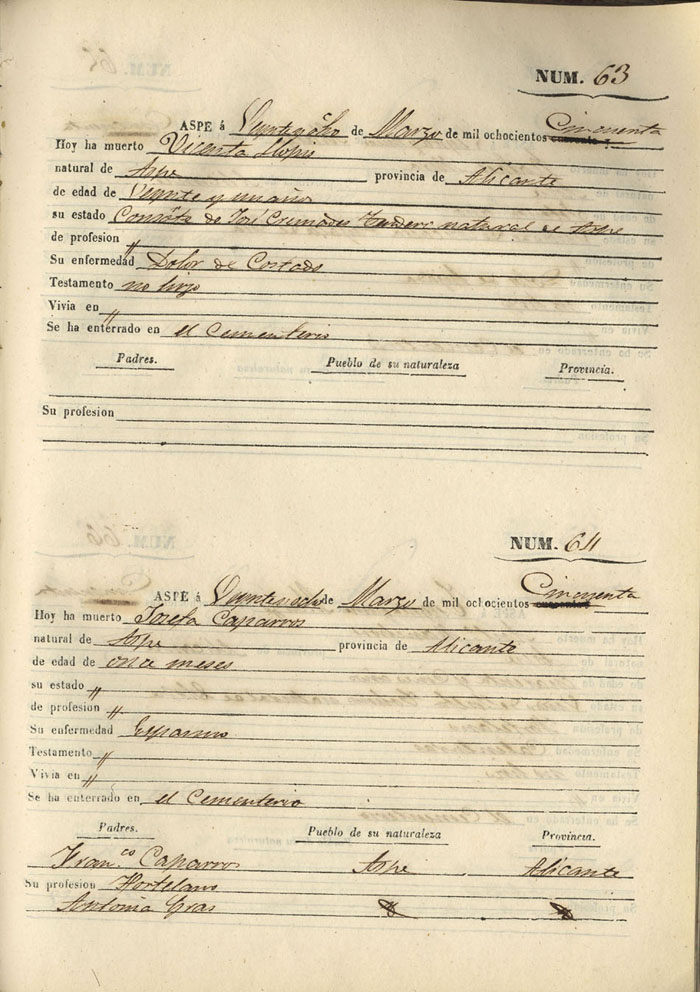 NUM. 63
ASPE á Veyntey ocho de Marzo de mil ochocientos cuarenta y Cincuenta
Hoy ha muerto Vicenta Llopis
natural de Aspe provincia de Alicante
de edad de Veynte y un años
su estado Consorte de José Cremades natural de Aspe
de profesion "
Su enfermedad Dolor de Costado
Testamento no hizo
Vivia en "
Se ha enterrado en el Cementerio
Padres. Pueblo de su naturaleza Provincia.
Su profesion
NUM. 64
ASPE á de Marzo de mil ochocientos cuarenta Cincuenta
Hoy ha muerto Josefa Caparros
natural de Aspe provincia de Alicante
de edad de once meses
su estado "
de profesion "
Su enfermedad Espasmo
Testamento "
Vivia en "
Se ha enterrado en el Cementerio
Padres. Pueblo de su naturaleza Provincia.
Fran.co Caparros Aspe Alicante
Su profesion Hortelano
Antonia Gras